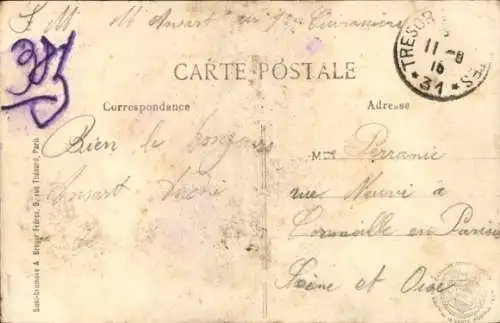 S. M. M Ansart au 9e Cuirassier
TRESOR
11-8
16
* 31 *
ES
CARTE POSTALE
Correspondance
Adresse
Bien le bonjour
Ansart
Mlle Perranie
rue Neuve à
Cormeille en Parisis
Seine et Oise
Semi-bromure A. Breger Frères, 9, rue Thénard, Paris